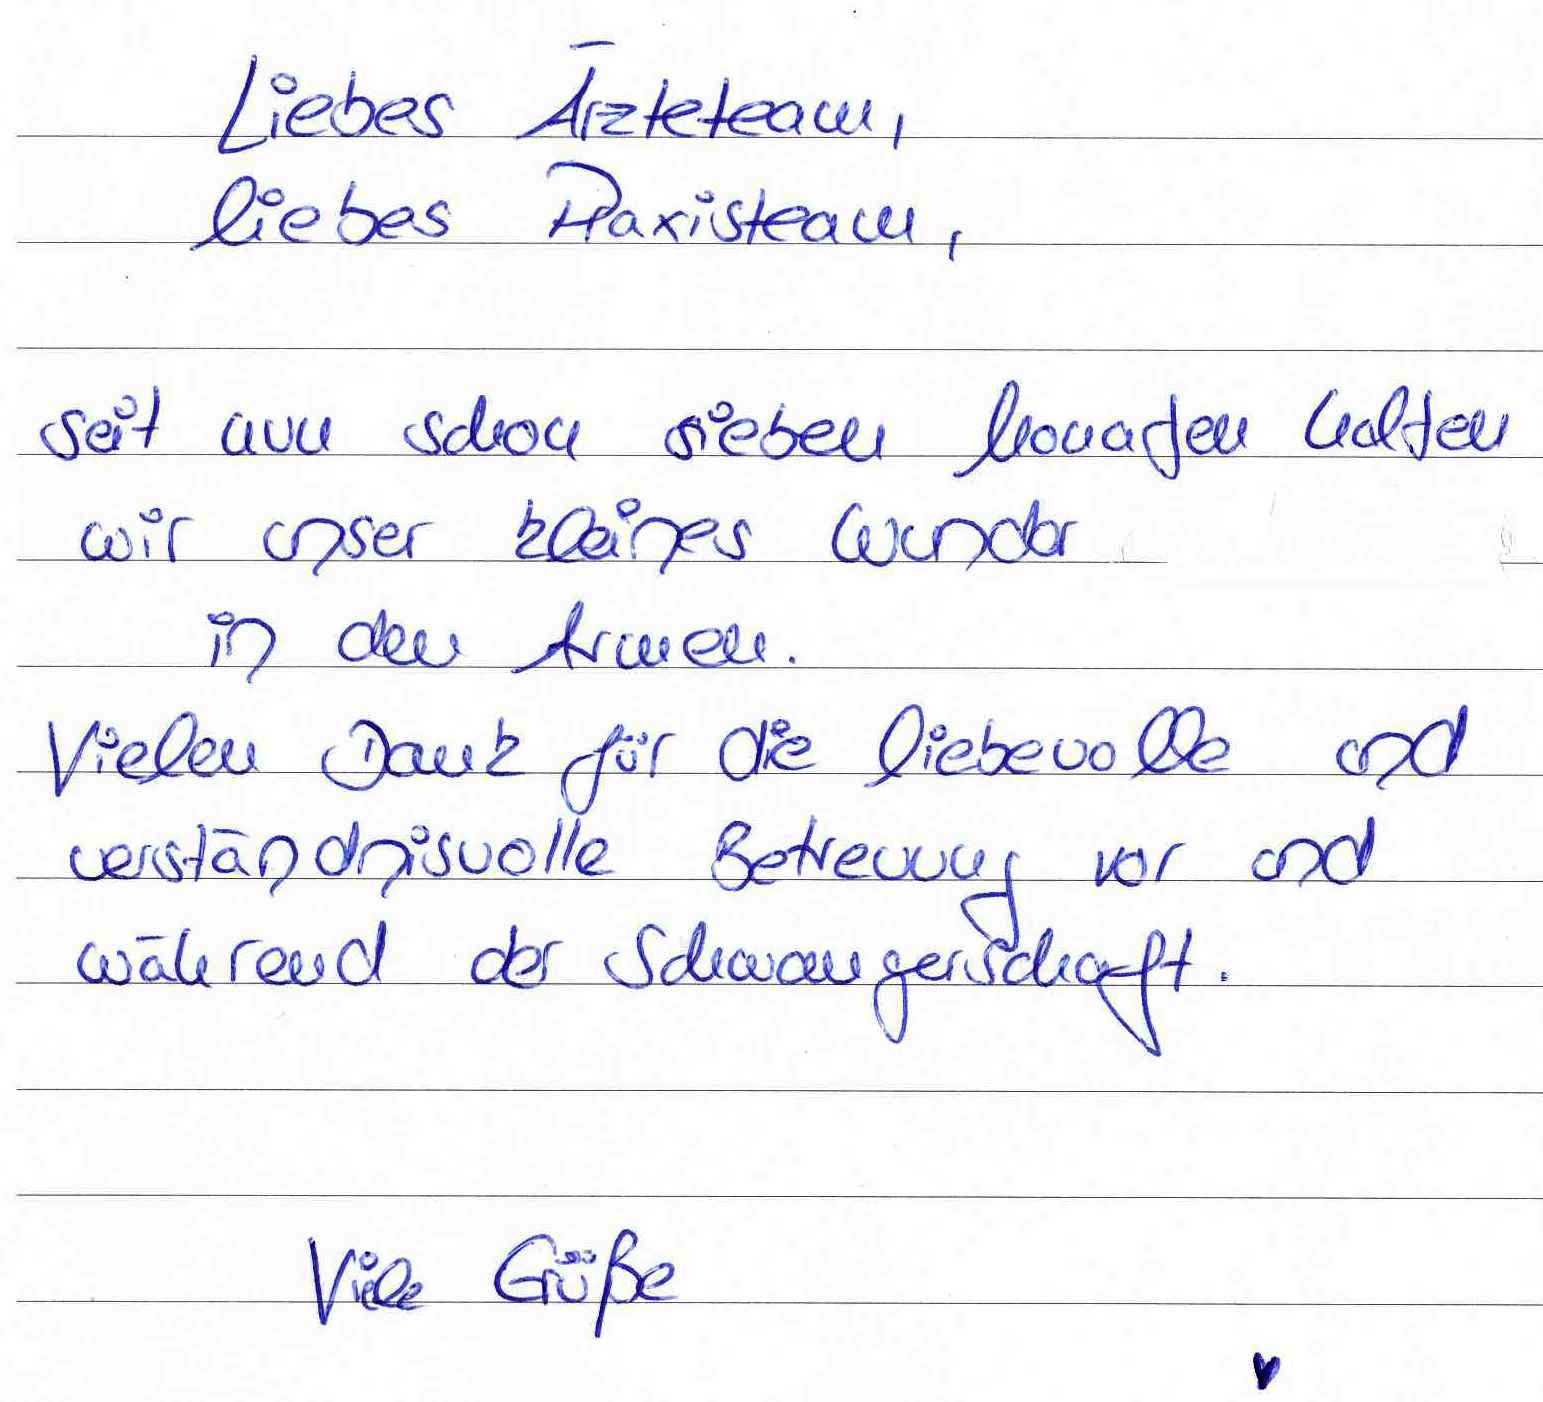 Liebes Ärzteteam,
liebes Praxisteam,
seit nun schon sieben Monaten halten
wir unser kleines Wunder
in den Armen.
Vielen Dank für die liebevolle und
verständnisvolle Betreuung vor und
während der Schwangerschaft.
Viele Grüße